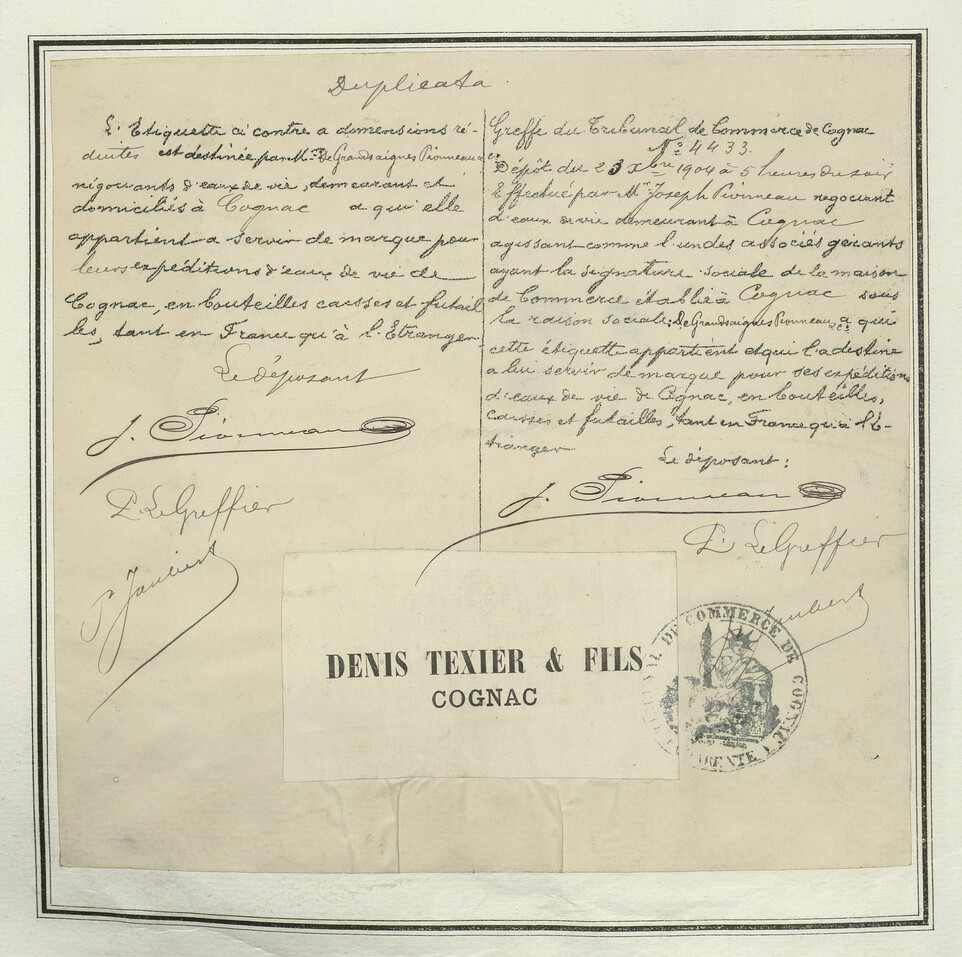 Duplicata.
L'Etiquette ci contre a dimensions ré-
duites est destinée par MM. De Grandsaignes Pionneau &
négociants d'eaux de vie, demeurant et
domiciliés à Cognac a qui elle
appartient a servir de marque pour
leurs expéditions d'eaux de vie de
Cognac, en bouteilles caisses et futail
les, tant en France qu'à l'Etranger
Le déposant
J. Pionneau
P. Le Greffier
P. Jaubert
Greffe du Tribunal de Commerce de Cognac
No 4433.
Dépôt du 23 Xbre 1904 à 5 heures du soir
Effectué par Mr Joseph Pionneau negociant
d'eaux de vie demeurant à Cognac
agissant comme l'un des associés gérants
ayant la signature sociale de la maison
de Commerce établie à Cognac sous
la raison sociale: De Grandsaignes Pionneau & a qui
cette étiquette appartient et qui l'a destine
a lui servir de marque pour ses expéditions
d'eaux de vie de Cognac, en bouteilles,
caisses et futailles, tant en France qu'à l'E-
tranger
Le déposant:
J. Pionneau
P. Le Greffier
Jaubert
DENIS TEXIER & FILS
COGNAC
TRIBUNAL DE COMMERCE DE COGNAC
CHARENTE